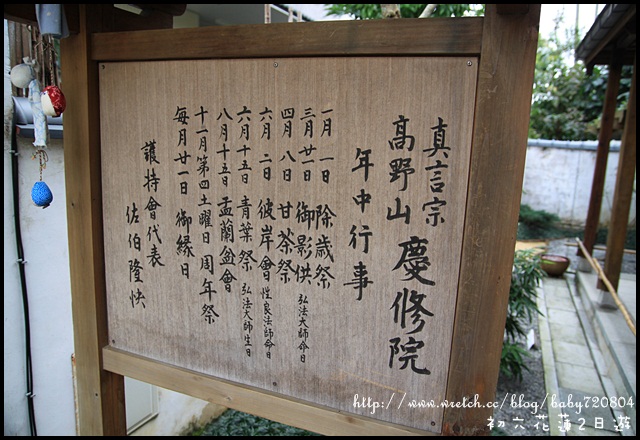 真言宗
高野山 慶修院
年中行事
一月一日 除歳祭
三月廿一日 御影供 弘法大師命日
四月八日 甘茶祭
六月二日 彼岸會 性良法師命日
六月十五日 青葉祭 弘法大師生日
八月十五日 盂蘭盆會
十一月第四土曜日 周年祭
每月廿一日 御緣日
護持會代表
佐伯隆快
http://www.wretch.cc/blog/baby720804
初六花蓮2日遊